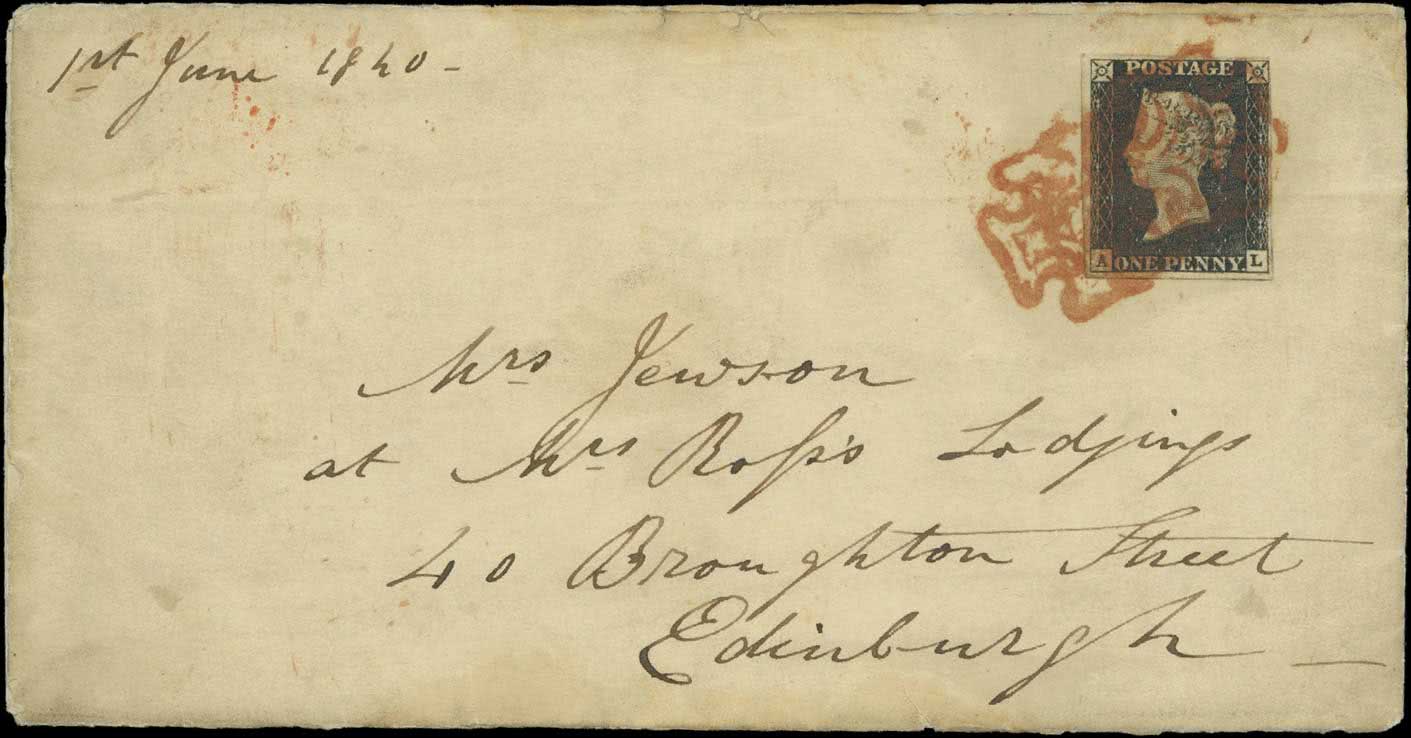 1st June 1840 -
POSTAGE
A ONE PENNY. L
Mrs Jewson
at Mrs Roſs's Lodgings
40 Broughton Street
Edinburgh